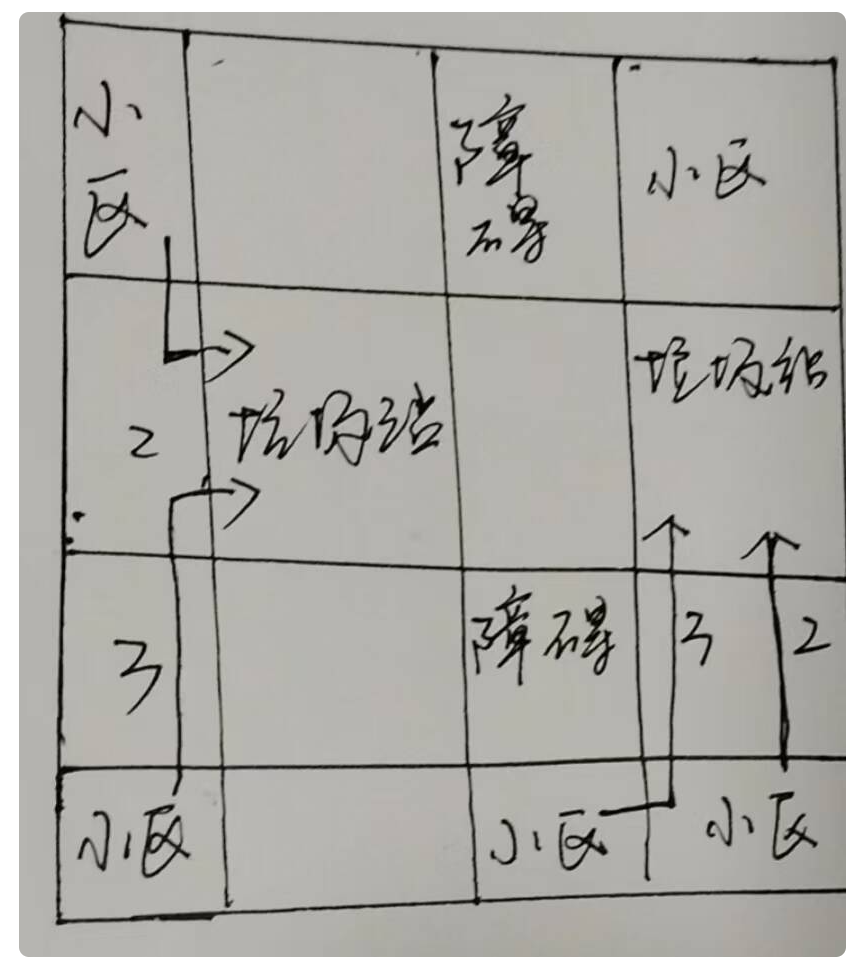 小区
障碍
小区
2
垃圾站
垃圾站
3
障碍
3
2
小区
小区
小区